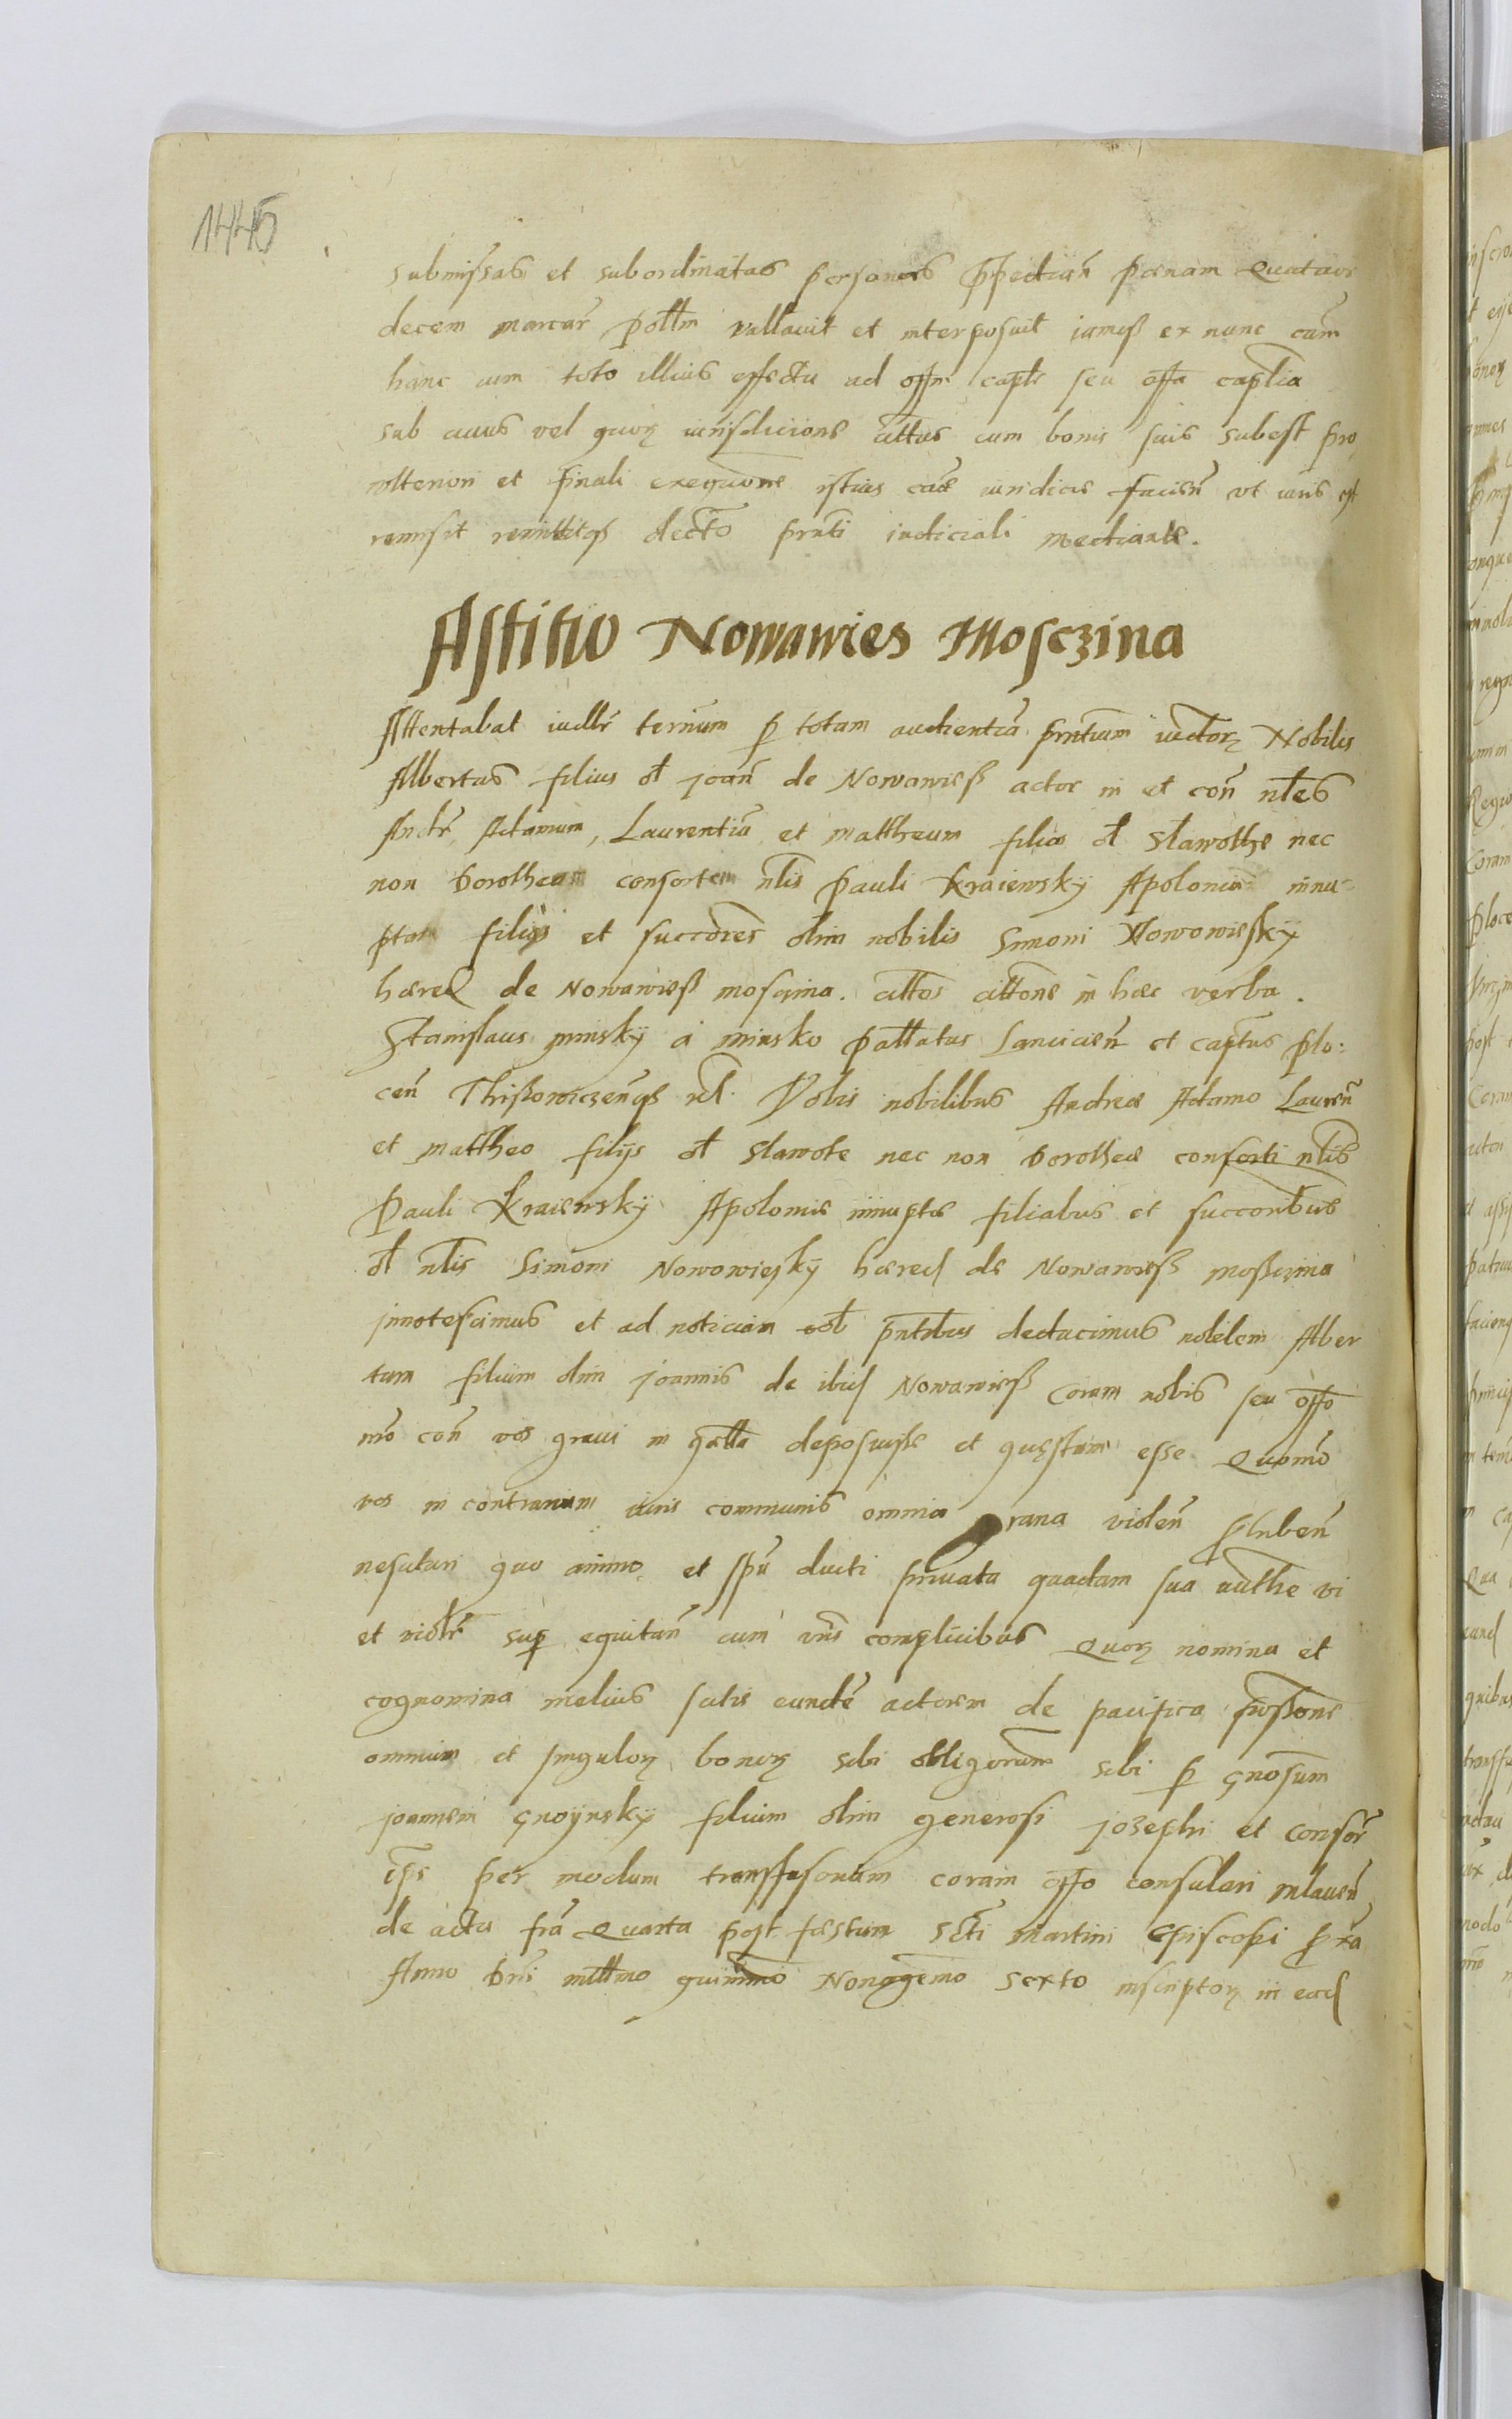 1445
submissas et subordinatas personas ppediañ pœnam Quatuor
decem marcar̃ polłm vallavit et interposuit iamq₃ ex nunc cam̃
hanc cum toto illius effectu ad offm̃ captr seu offa captłia
sub cuius vel quor₃ iurisdicione cittũs cum bonis suis subest pro
ulteriori et finali exeqũone istius cãe iuridice facień vt iuris est
remisit remittitq₃ decto prñti iudiciali mediante.
Astitio Nowawies Mosczina
Attentabat iudłr ternum p totam audientiã prñtium iudor₃ Nobilis
Albertus filius oł joañ de Nowawieß actor in et coñ nłes
Andr̃, Adamum, Laurentiũ et Mattheum filios oł Sławothe nec
non Dorotheam consortem nłis Pauli Kraiewsky Apoloniã innu-
ptam filias et succores olim nobilis Simoni Nowowiesky
hæred de Nowawieß moscina. cittos cittone in hæc verba.
Stanislaus minsky a minsko Pallatus Lancicień et captus plo:
ceñ Thißowiczenq₃ rcł. Vobis nobilibus Andreæ Adamo Laureñ
et Mattheo filijs oł Slawote nec non Dorotheæ consorti nłis
Pauli Kraiewsky Apolonie innuptæ filiabus et succoribus
oł nłis Simoni Nowowiesky hæred de Nowawieß moßczina
innotescimus et ad noticiam vob pñtibus deducimus nobilem Alber
tum filium olim joannis de ibid Nowawieß Coram nobis seu offo
nrõ coñ vos gravi in q̃ælla deposuisse et quæstum esse Quomõ
vos in contrarium iuris communis omnia rana violeñ phibeñ
nescitur quo animo et spũ ducti privata quadam sua authe vi
et violr̃ sup equitañ cum vr̃is complicibus Quor₃ nomina et
cognomina melius scitis eundẽ actorem de pacifica possone
omnium et singulor₃ bonor₃ sibi obligatorum sibi p gnosum
joannem gnoynsky filium olim generosi josephi et consor̃
eps per modum transfusorum coram offo consulari mlaveñ
de actu fr̃a Quarta post fæstum Scti Martini Episcopi prxa
Anno Dñi millmo quinmo Nonagemo Sexto inscriptor₃ in ead